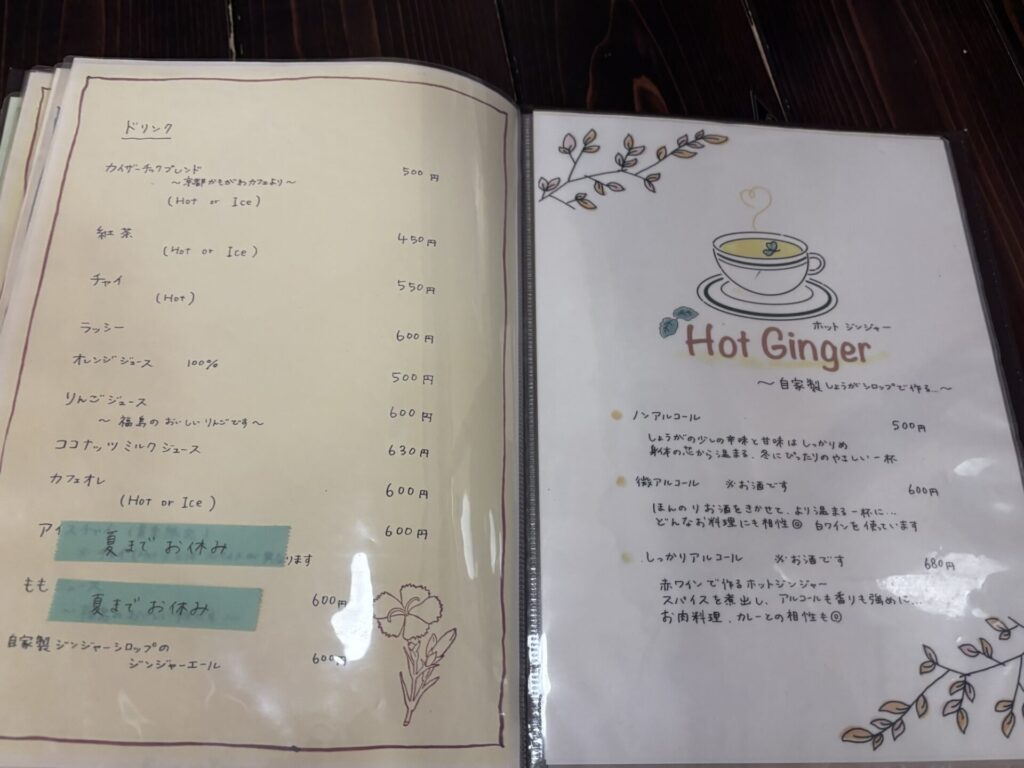 ドリンク
カイザーチックブレンド 500円
～京都かもがわカフェより～
(Hot or Ice)
紅茶 450円
(Hot or Ice)
チャイ 550円
(Hot)
ラッシー 600円
オレンジジュース 100% 500円
りんごジュース 600円
～福島のおいしいりんごです～
ココナッツミルクジュース 630円
カフェオレ 600円
(Hot or Ice)
アイス 600円
夏までお休み
ります
もも 600円
夏までお休み
自家製ジンジャーシロップの
ジンジャーエール 600円
ホットジンジャー
Hot Ginger
～自家製しょうがシロップで作る…～
ノンアルコール 500円
しょうがの少しの辛味と甘味はしっかりめ
身体の芯から温まる、冬にぴったりのやさしい一杯
微アルコール ※お酒です 600円
ほんのりお酒をきかせて、より温まる一杯に…
どんなお料理にも相性◎ 白ワインを使っています
しっかりアルコール ※お酒です 680円
赤ワインで作るホットジンジャー
スパイスを煮出し、アルコールも香りも強めに…
お肉料理、カレーとの相性も◎